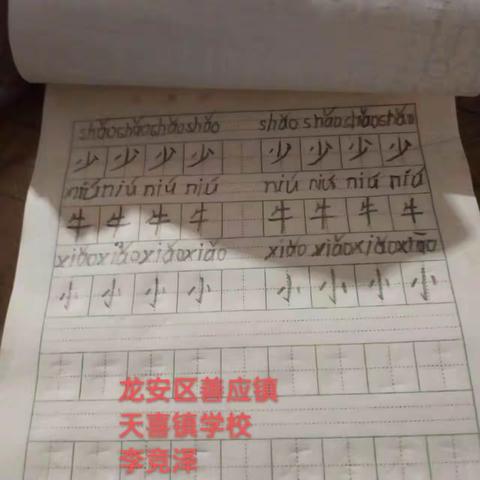 shǎo shǎo shǎo shǎo shǎo shǎo shǎo shǎo
少 少 少 少 少 少 少 少
niú niú niú niú niú niú niú niú
牛 牛 牛 牛 牛 牛 牛 牛
xiǎo xiǎo xiǎo xiǎo xiǎo xiǎo xiǎo xiǎo
小 小 小 小 小 小 小 小
龙安区善应镇
天喜镇学校
李竞泽